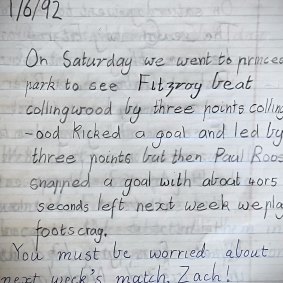 1/6/92
On Saturday we went to princes
park to see Fitzroy beat
collingwood by three points colling
-ood kicked a goal and led by
three points but then Paul Roos
snapped a goal with about 4ors
seconds left next week we pla
footscrag.
You must be worried about
next week's match, Zach!